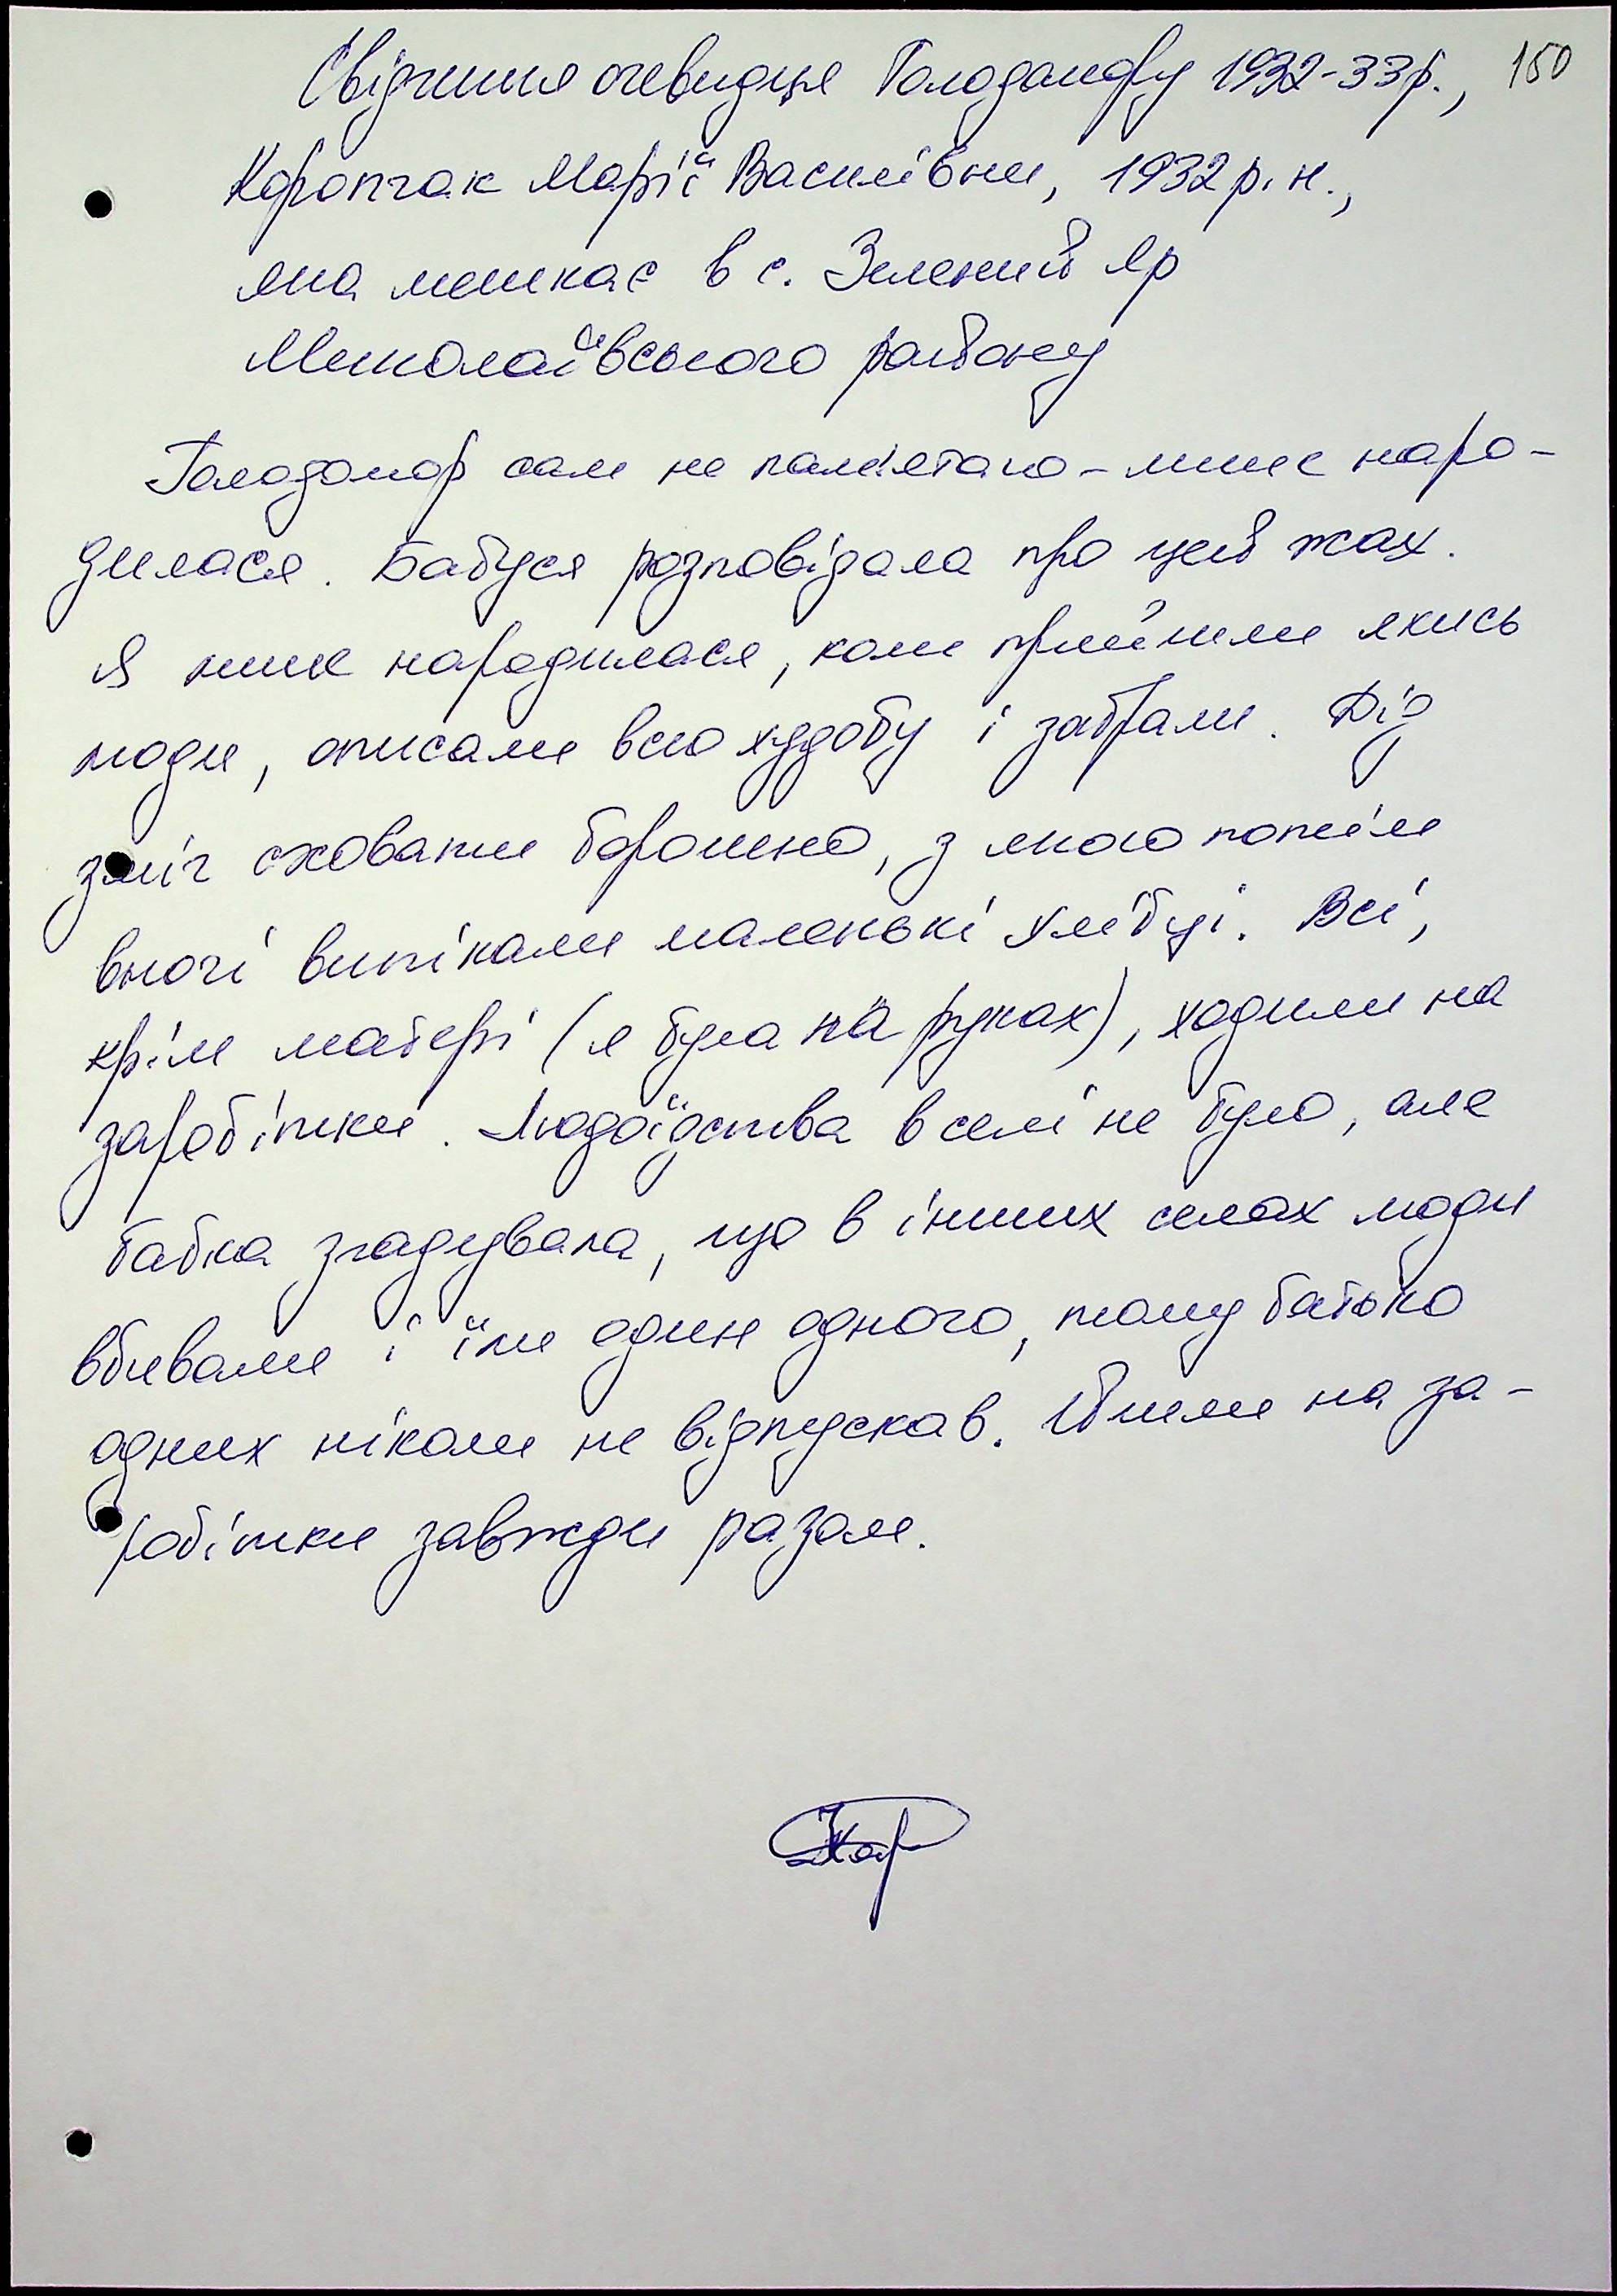 Свідчення очевидця Голодомору 1932-33р., 150
Коропчак Марії Василівни, 1932 р. н.,
яка мешкає в с. Зелений Яр
Миколаївського району
Голодомор сам не пам'ятаю – лише наро-
дилася. Бабуся розповідала про цей жах.
Я лише народилася, коли прийшли якись
люди, описали всю худобу і забрали. Дід
зміг сховати борошно, з якого потім
вночі випікали маленькі хлібці. Всі,
крім матері (я була на руках), ходили на
заробітки. Людоїдства в селі не було, але
бабка згадувала, що в інших селах люди
вбивали і їли один одного, тому батько
одних ніколи не відпускав. Йшли на за-
робітки завжди разом.